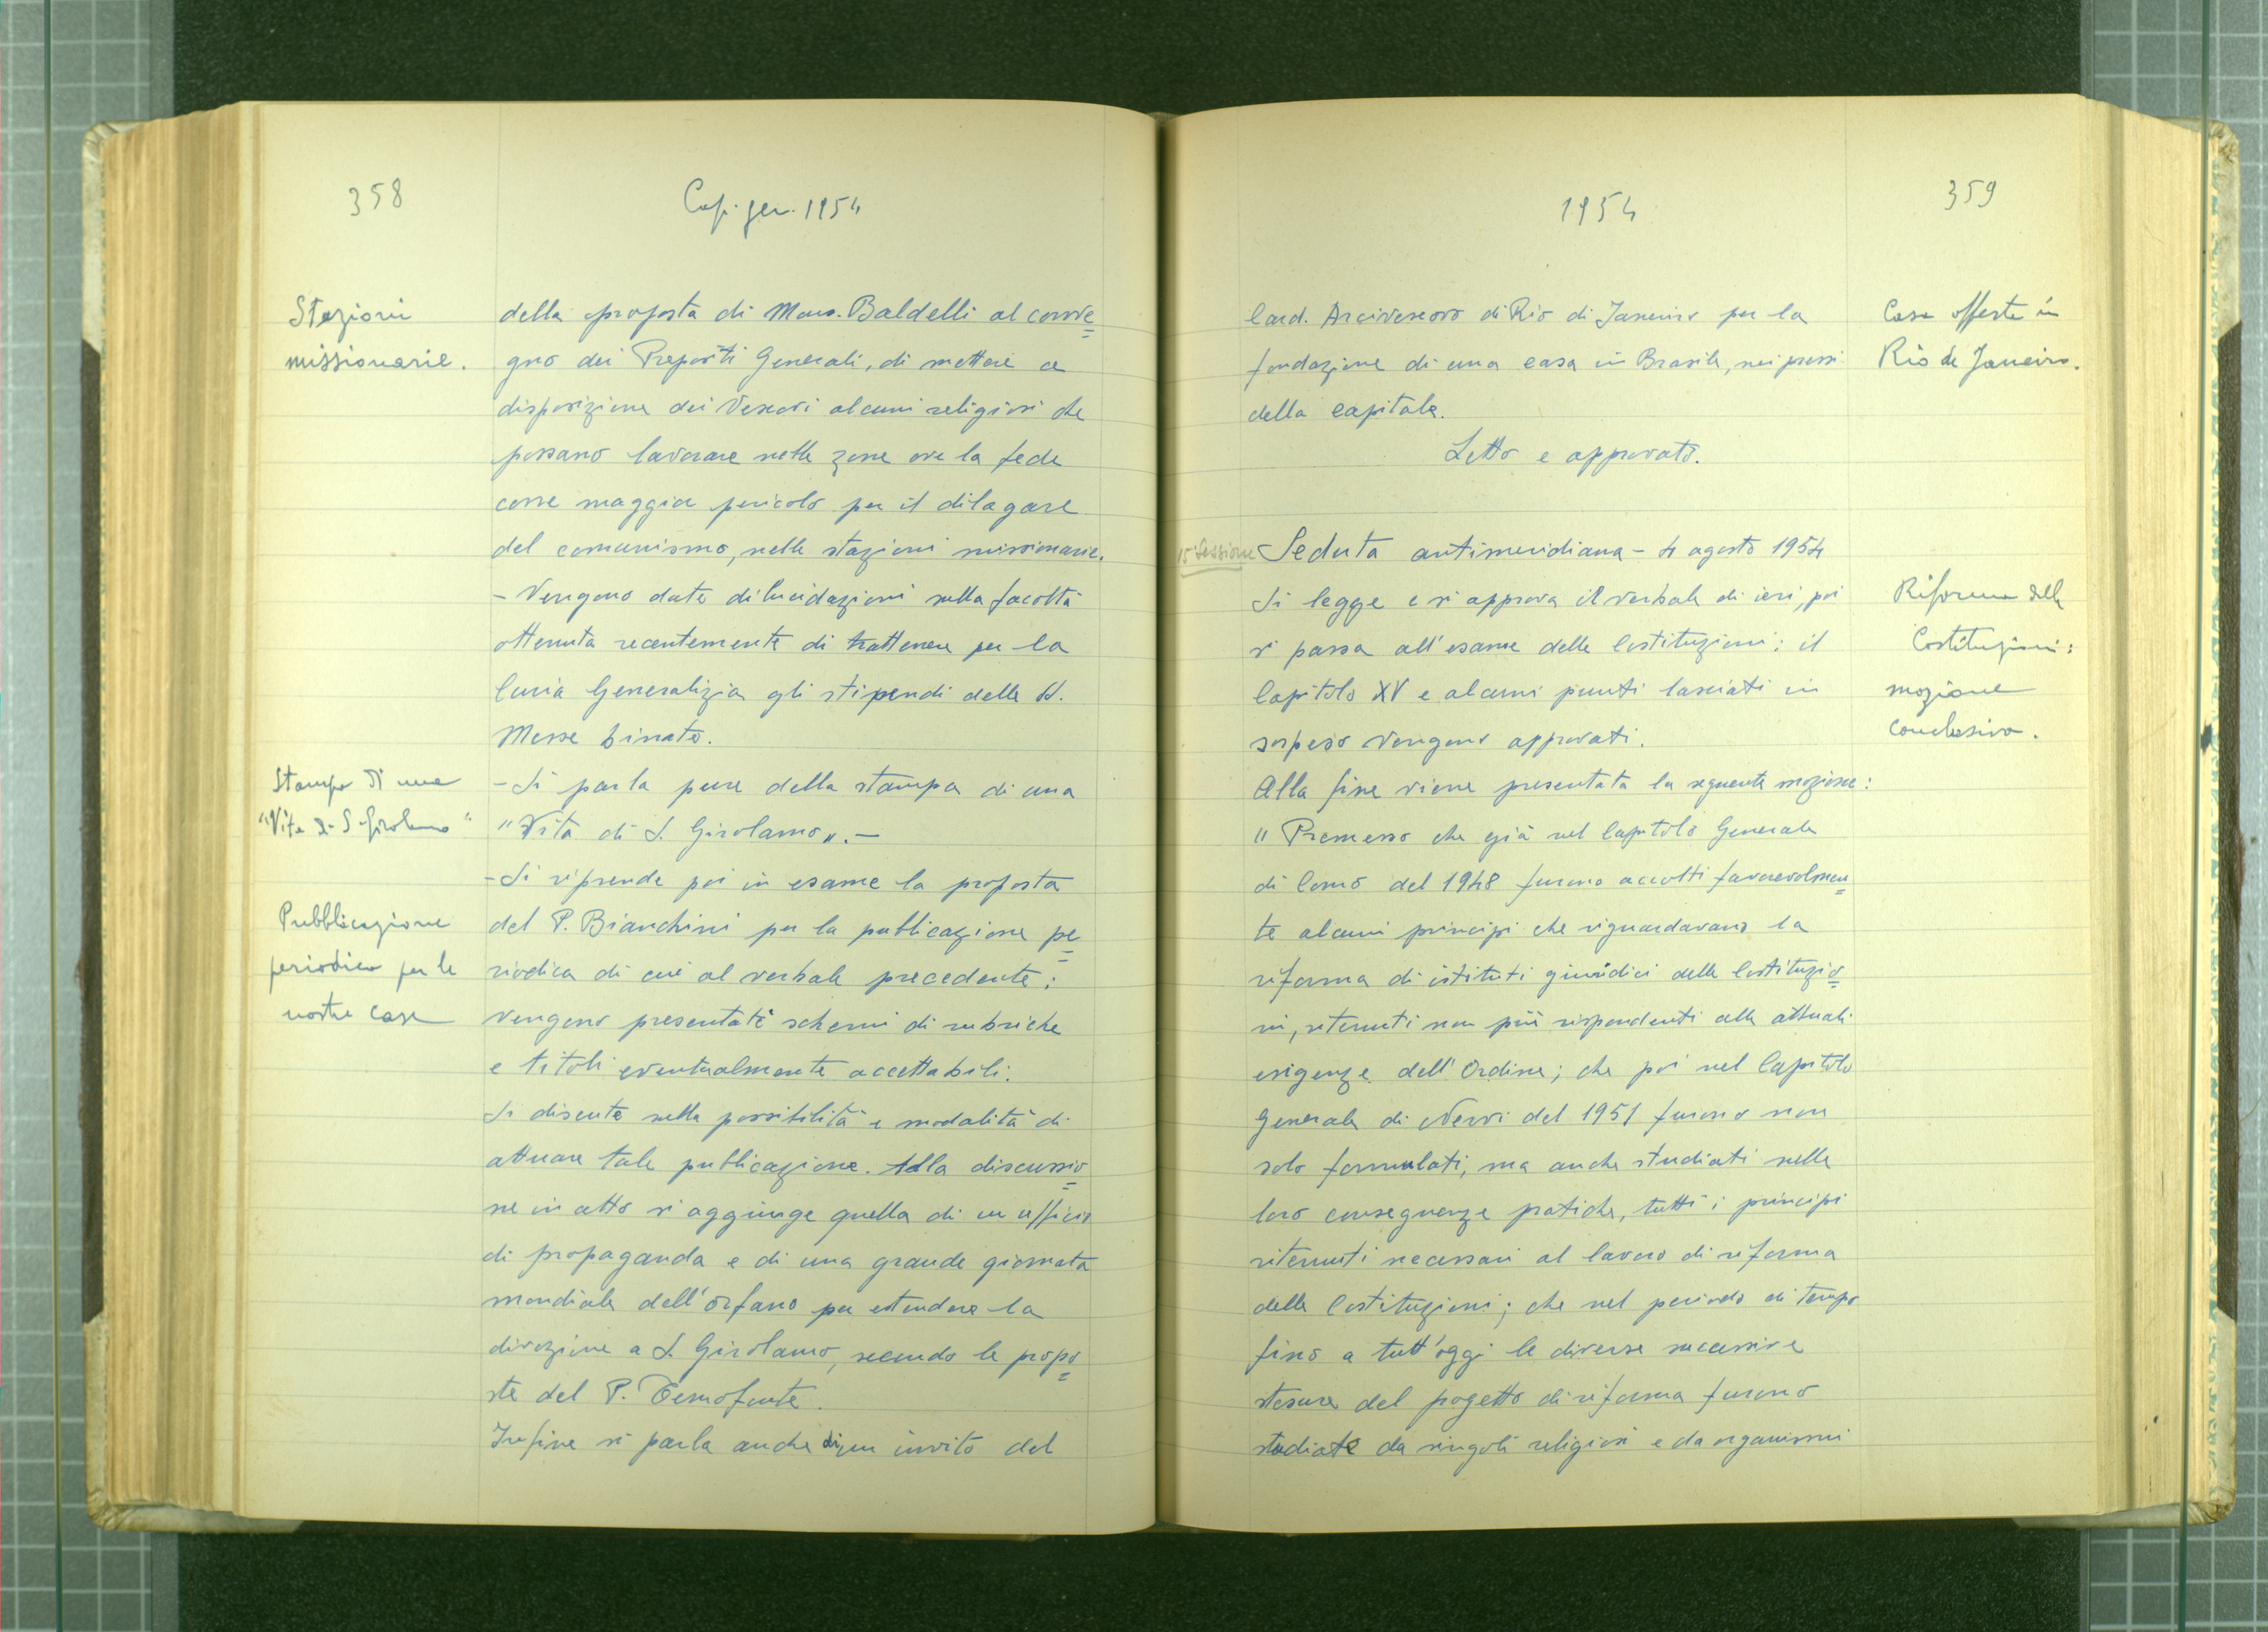 358
Cap. gen. 1954
Stazioni
missionarie.
della proposta di Mons. Baldelli al conve=
gno dei Prepositi Generali, di mettere a
disposizione dei Vescovi alcuni religiosi che
possano lavorare nelle zone ove la fede
corre maggior pericolo per il dilagare
del comunismo, nelle stazioni missionarie.
- Vengono date dilucidazioni sulla facoltà
ottenuta recentemente di trattenere per la
Curia Generalizia gli stipendi delle SS.
Messe binate.
Stampa di una
"Vita di S. Girolamo"
- Si parla pure della stampa di una
"Vita di S. Girolamo". -
- Si riprende poi in esame la proposta
Pubblicazione
periodica per le
nostre case
del P. Bianchini per la publicazione pe=
riodica di cui al verbale precedente:
vengono presentati schemi di rubriche
e titoli eventualmente accettabili.
Si discute sulla possibilità e modalità di
attuare tale publicazione. Alla discussio=
ne in atto si aggiunge quella di un ufficio
di propaganda e di una grande giornata
mondiale dell'orfano per estendere la
divozione a S. Girolamo, secondo le propo=
ste del P.
Infine si parla anche di un invito del
1954
359
Card. Arcivescovo di Rio di Janeiro per la
fondazione di una casa in Brasile, nei pressi
della capitale.
Casa offerta in
Rio de Janeiro.
Letto e approvato.
15ª Sessione
Seduta antimeridiana - 4 agosto 1954
Si legge e si approva il verbale di ieri, poi
si passa all'esame delle Costituzioni: il
Capitolo XV e alcuni punti lasciati in
sospeso vengono approvati.
Riforma delle
Costituzioni:
mozione
conclusiva.
Alla fine viene presentata la seguente mozione:
"Premesso che già nel Capitolo Generale
di Como del 1948 furono accolti favorevolmen=
te alcuni principi che riguardavano la
riforma di istituti giuridici delle Costituzio=
ni, ritenuti non più rispondenti alle attuali
esigenze dell'Ordine; che poi nel Capitolo
Generale di Nervi del 1951 furono non
solo formulati, ma anche studiati nelle
loro conseguenze pratiche, tutti i principi
ritenuti necessari al lavoro di riforma
delle Costituzioni; che nel periodo di tempo
fino a tutt'oggi le diverse successive
stesure del progetto di riforma furono
studiate da singoli religiosi e da organismi